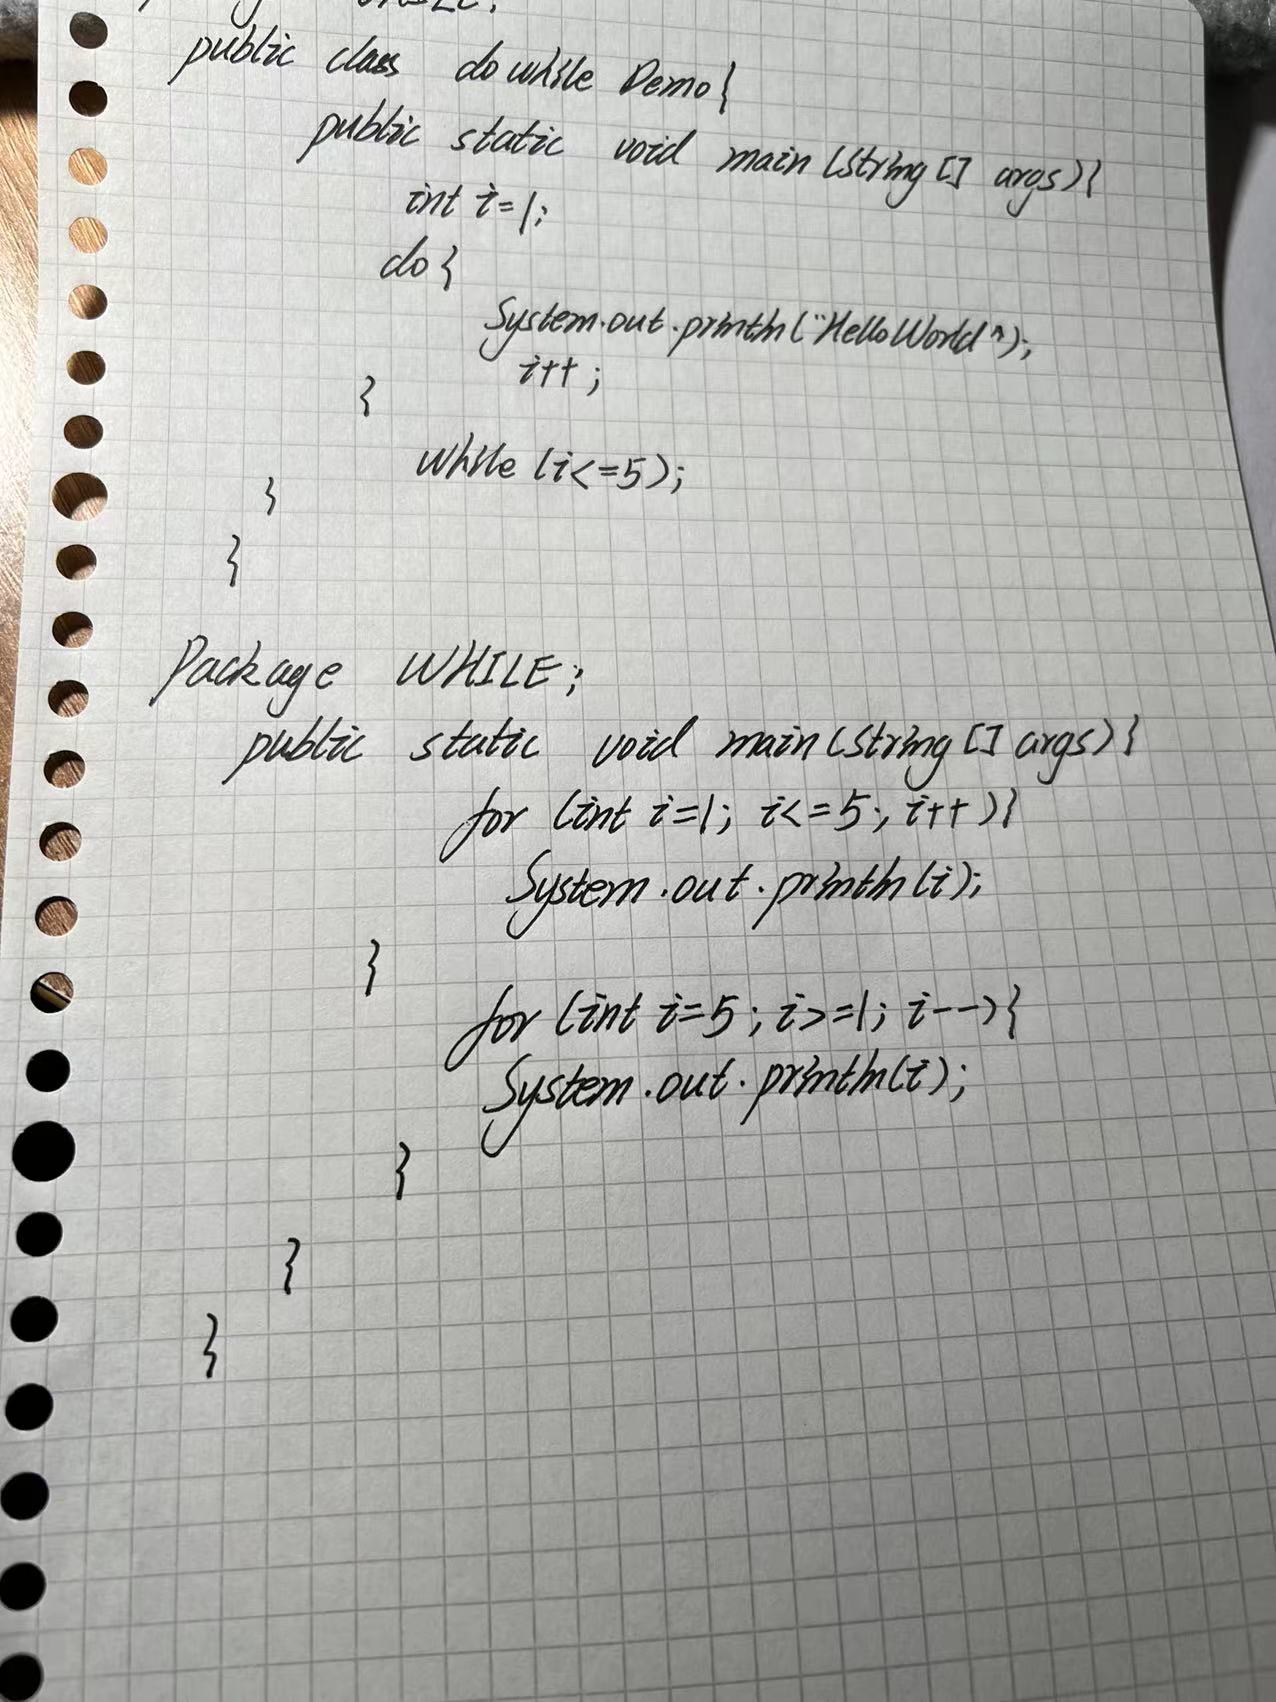 public class dowhile Demo{
public static void main (String [] args){
int i=1;
do {
System.out.println("HelloWorld");
i++;
}
while (i<=5);
}
}
Package WHILE;
public static void main (String [] args){
for (int i=1; i<=5; i++){
System.out.println(i);
}
for (int i=5; i>=1; i--){
System.out.println(i);
}
}
}